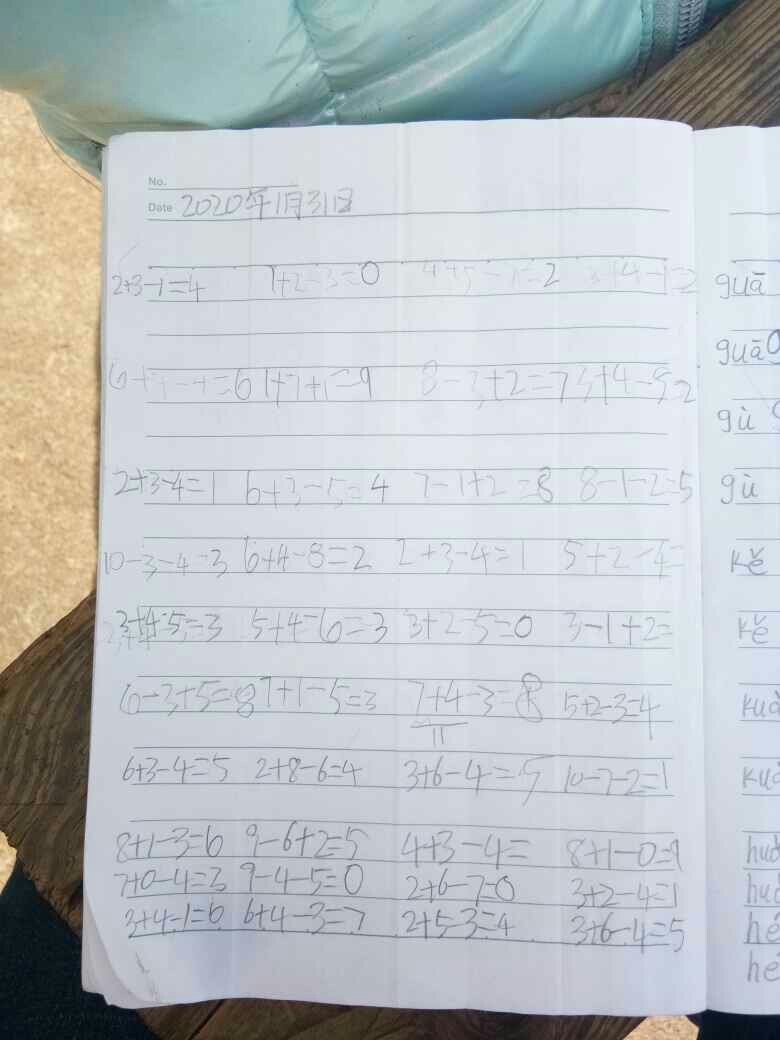 No.
Date 2020年1月31日
2+3-1=4 1+2-3=0 4+5-7=2 3+4-1=2
6+ = 6 1+7+1=9 8-3+2=7 3+4-5=2
2+3-4=1 6+3-5=4 7-1+2=8 8-1-2=5
10-3=4=3 6+4-8=2 2+3-4=1 5+2-4=
3+4-5=3 5+4=6=3 3+2-5=0 3-1+2=
6-3+5=8 7+1-5=3 7+4-3=8 5+2-3=4
11
6+3-4=5 2+8-6=4 3+6-4=5 10-7-2=1
8+1-3=6 9-6+2=5 4+3-4= 8+1-0=9
7+0-4=3 9-4-5=0 2+6-7=0 3+2-4=1
3+4-1=6 6+4-3=7 2+5-3=4 3+6-4=5
guā
guā
gù
gù
kě
kě